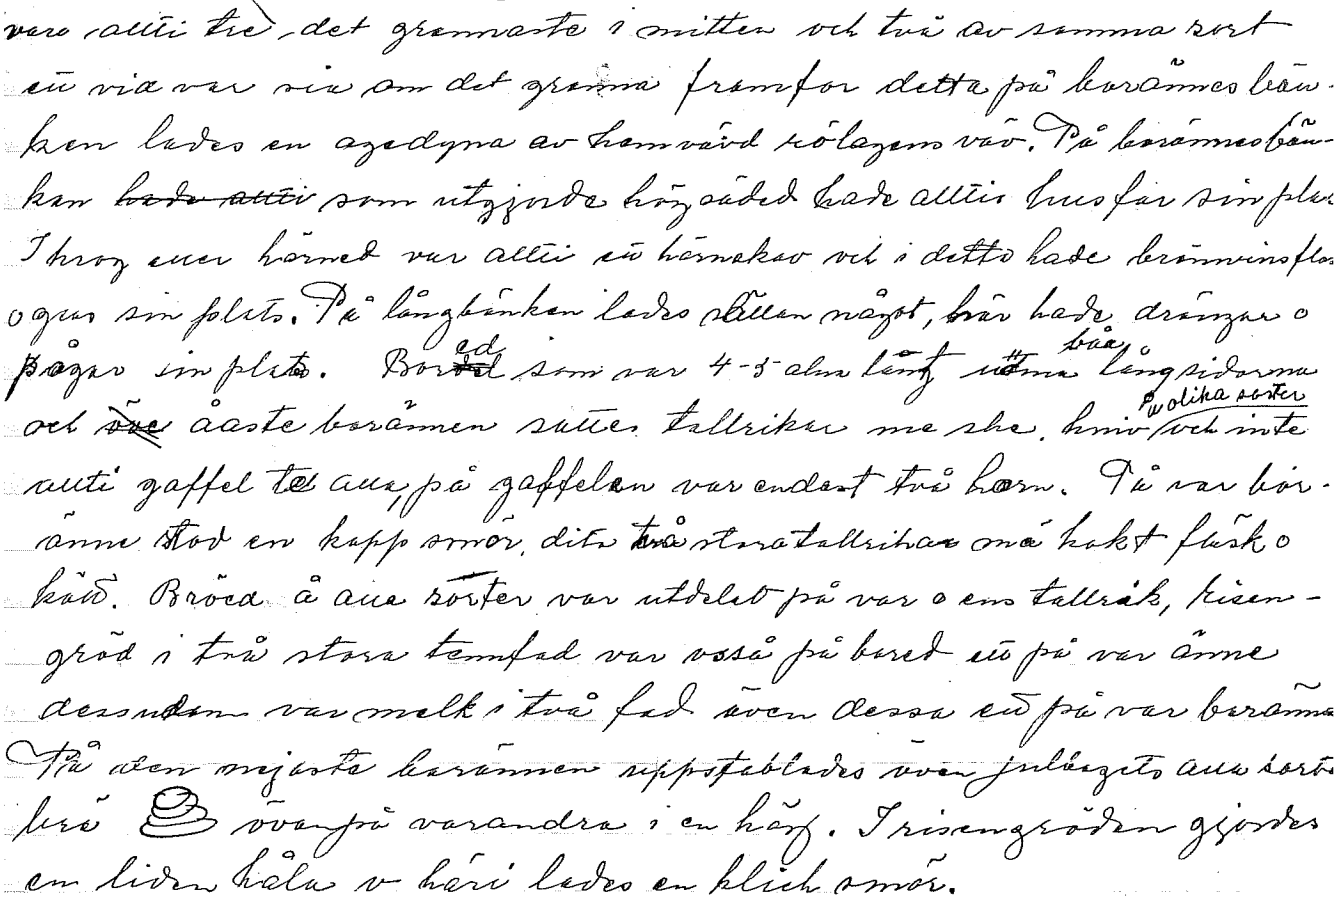 vara allti tre det grannaste i mitten och två av samma sort
ett vid var sia om det granna framför detta på borännesbän-
ken lades en agedyna av hemvävd rölagens väv. På borännesbän-
kan hade alltid som utgjorde högsäded hade alltid husfar sin plas
I krog eller hörned var alltid ett hörnskav och i detta hade brännvinsflas
o glas sin plats. På långbänken lades sällan något, här hade drängar o
pågar sin plats. Borded som var 4-5 alna långt utma båa långsidorna
och öve åaste borännen sattes tallrikar me ske, kniv av olika sorter och inte
allti gaffel tell alla, på gaffelen var endast två horn. På var bor-
änne stod en kopp smör, dito två stora tallrikar må kokt fläsk o
kött. Bröed å alla sorter var utdelat på var o ens tallrik, risen-
gröd i två stora tennfad var osså på bored ett på var änne
dessutom var melk i två fad även dessa ett på var boränne
På den nejaste borännen uppstablades även julaagets alla sorts
brö ovanpå varandra i en hög. I risengröden gjordes
en liden håla o häri lades en klick smör.